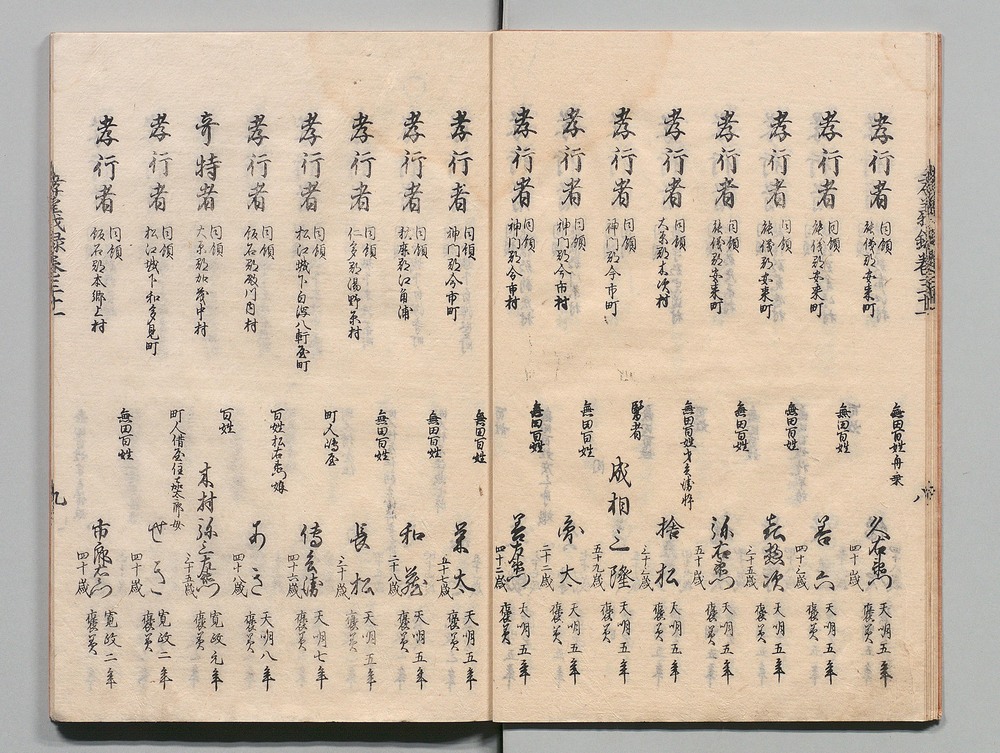 孝行者 同領 能儀郡安来町 無田百姓舟乗 久右衛門 四十歳 天明五年 褒美
孝行者 同領 能儀郡安来町 無田百姓 善六 四十歳 天明五年 褒美
孝行者 同領 能儀郡安来町 無田百姓 喜惣次 三十五歳 天明五年 褒美
孝行者 同領 能儀郡安来町 無田百姓 弥右衛門 五十歳 天明五年 褒美
孝行者 同領 大原郡木次村 無田百姓 捨松 天明五年 褒美
孝行者 同領 神門郡今市町 醫者 成相三隆 五十九歳 天明五年 褒美
孝行者 同領 神門郡今市村 無田百姓 大 三十二歳 天明五年 褒美
孝行者 同領 神門郡今市村 無田百姓 善右衛門 四十二歳 天明五年 褒美
孝行者 同領 神門郡今市町 無田百姓 太 五十七歳 天明五年 褒美
孝行者 同領 秋鹿郡江角浦 無田百姓 和蔵 二十八歳 天明五年 褒美
孝行者 同領 仁多郡湯野原村 無田百姓 長松 三十歳 天明五年 褒美
孝行者 同領 松江城下白潟八軒屋町 町人嶋屋 傳兵衛 四十六歳 天明七年 褒美
孝行者 同領 飯石郡殿川内村 百姓松右衛門娘 きさ 四十八歳 天明八年 褒美
奇特者 同領 大原郡加茂中村 百姓 木村弥三右衛門 三十五歳 寛政元年 褒美
孝行者 同領 松江城下和多見町 町人借屋住嘉太郎母 せき 四十歳 寛政二年 褒美
孝行者 同領 飯石郡本郷上村 無田百姓 市右衛門 四十歳 寛政二年 褒美
孝義録巻三十一
八
九